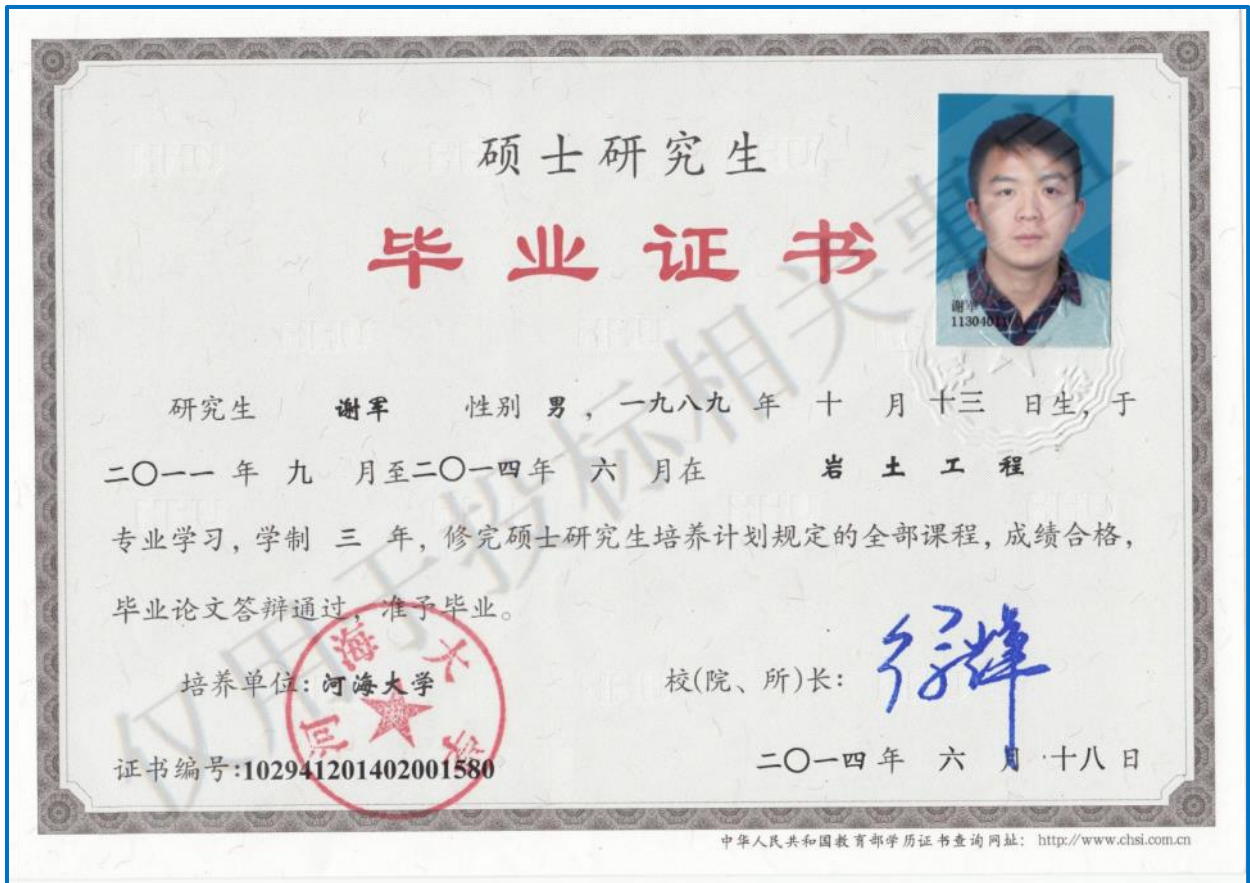 硕士研究生
毕业证书
谢军
研究生 谢军 性别 男，一九八九 年 十 月 十三 日生，于
二〇一一 年 九 月至二〇一四年 六 月在 岩土工程
专业学习，学制 三 年，修完硕士研究生培养计划规定的全部课程，成绩合格，
毕业论文答辩通过，准予毕业。
培养单位：河海大学
校(院、所)长：
河海大学
证书编号:102941201402001580
二〇一四年 六 月 十八 日
中华人民共和国教育部学历证书查询网址： http://www.chsi.com.cn
仅用于投标相关事宜